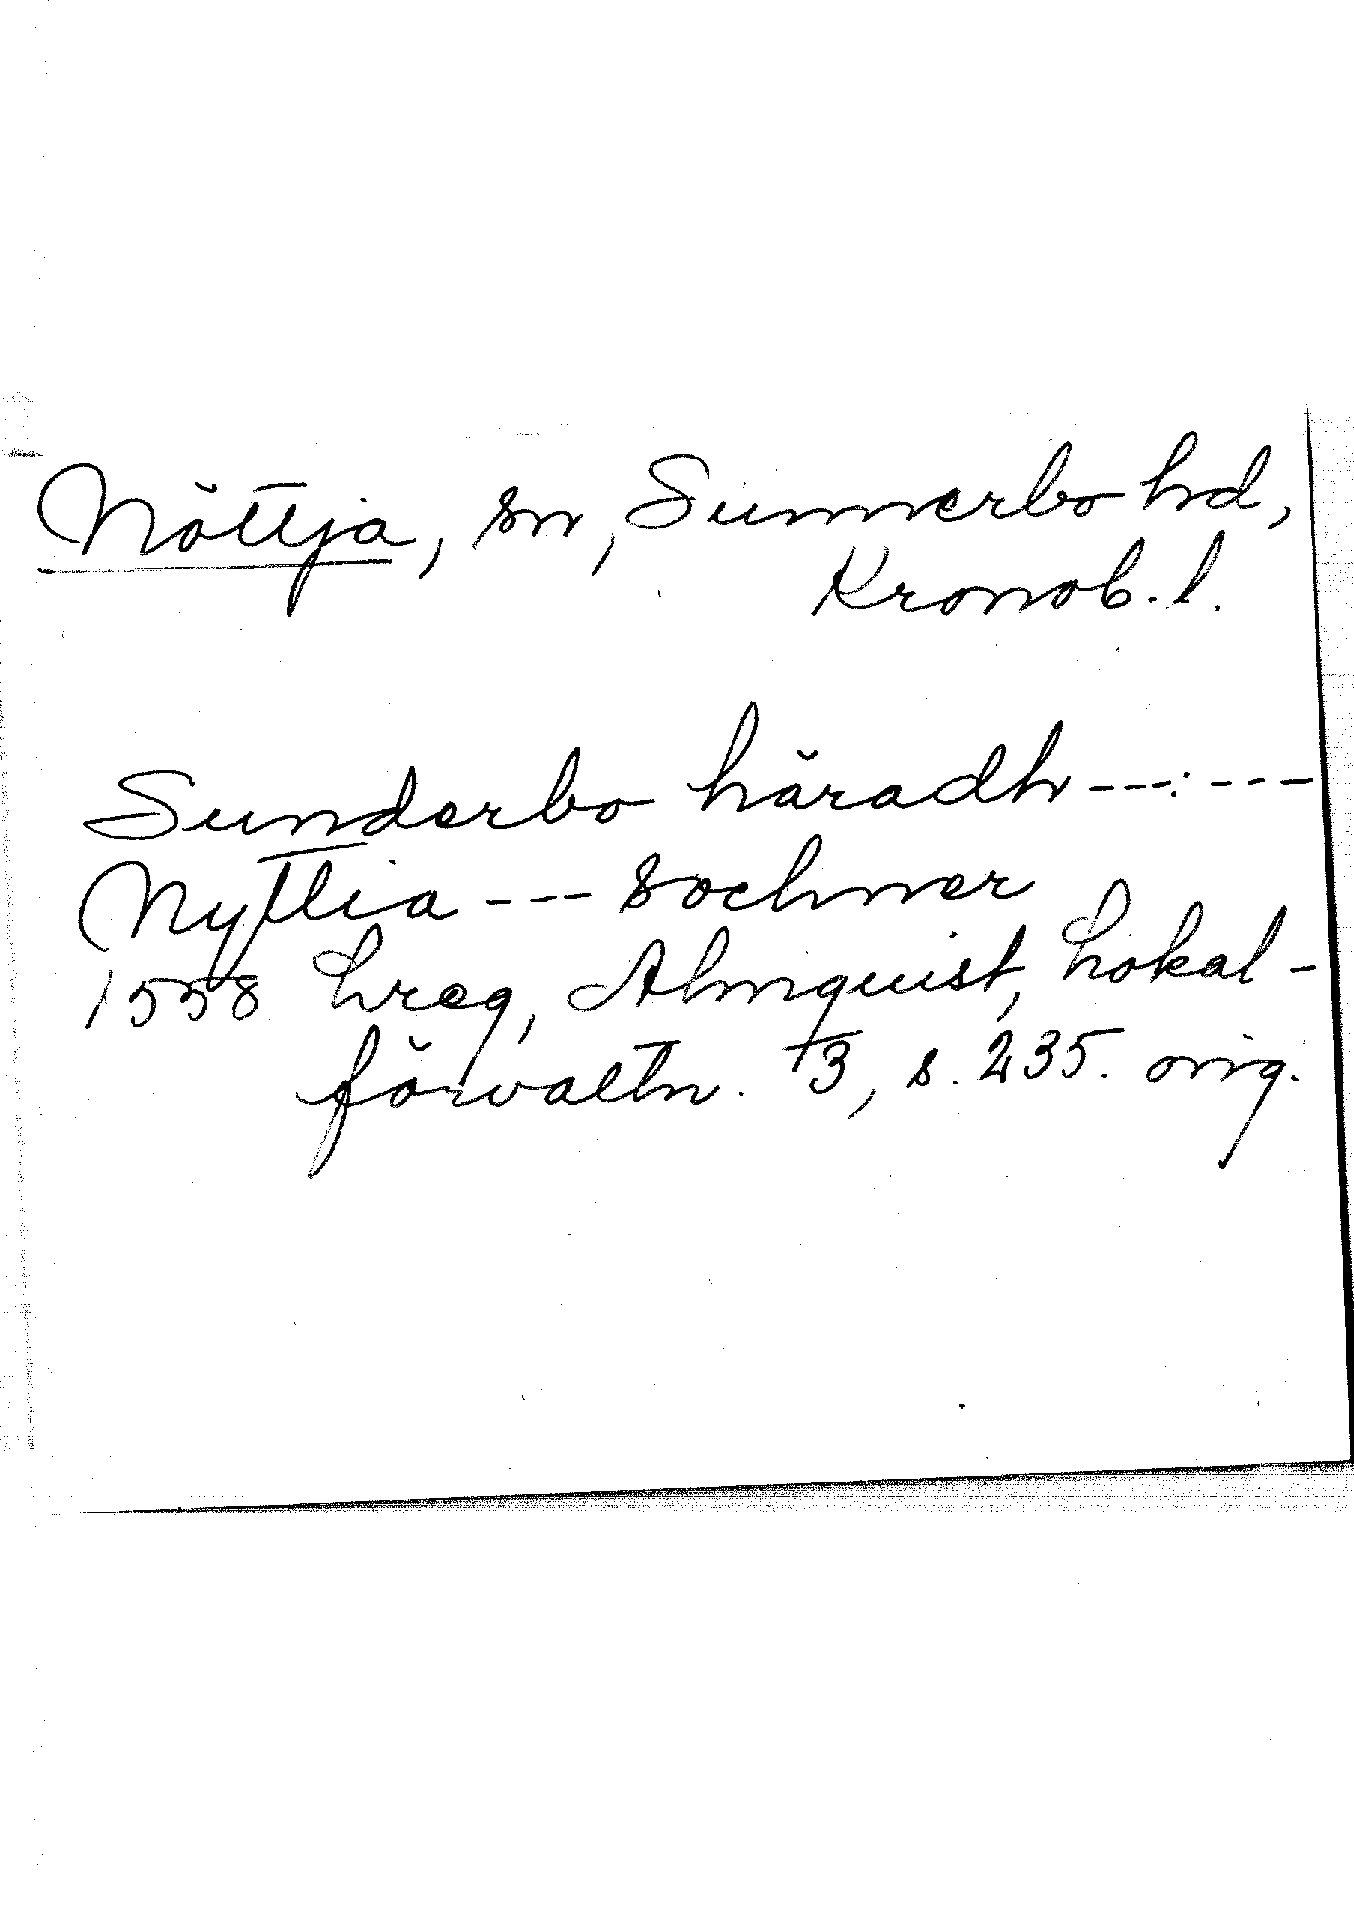 Nöttja, sn, Sunnerbo hd,
Kronob. l.
Sunderbo häradh ---:---
Nyttia --- sochner
1558 Lreg, Almquist, Lokal-
förvaltn. 3, s. 235. orig.